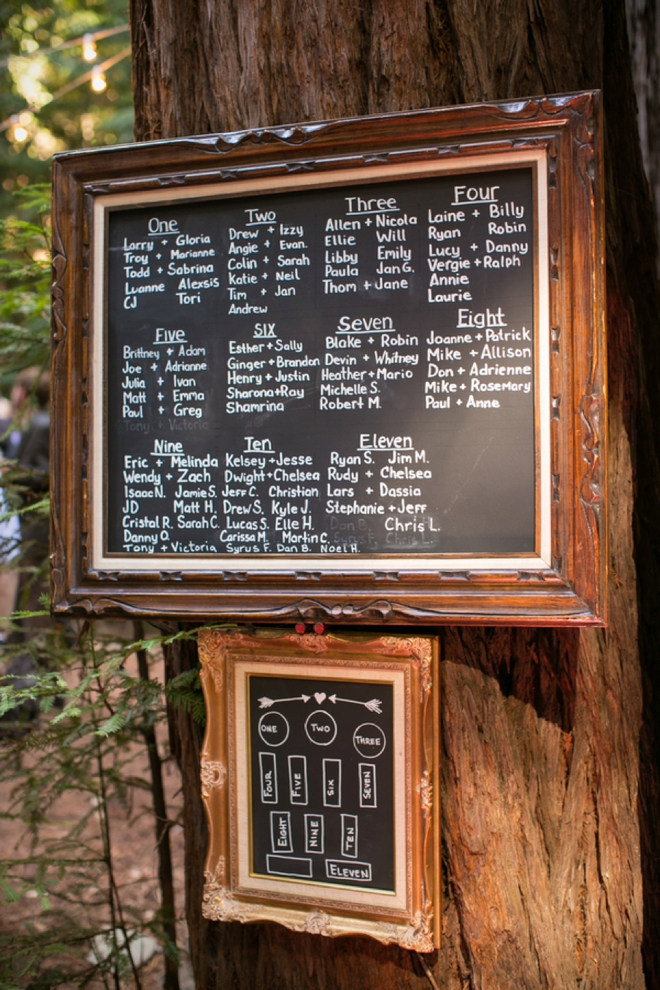 One
Larry + Gloria
Troy + Marianne
Todd + Sabrina
Luanne Alexsis
CJ Tori
Two
Drew + Izzy
Angie + Evan.
Colin + Sarah
Katie + Neil
Tim + Jan
Andrew
Three
Allen + Nicola
Ellie Will
Libby Emily
Paula Jan G.
Thom + Jane
Four
Laine + Billy
Ryan Robin
Lucy + Danny
Vergie + Ralph
Annie
Laurie
Five
Brittney + Adam
Joe + Adrianne
Julia + Ivan
Matt + Emma
Paul + Greg
Tony + Victoria
SIX
Esther + Sally
Ginger + Brandan
Henry + Justin
Sharona + Ray
Shamrina
Seven
Blake + Robin
Devin + Whitney
Heather + Mario
Michelle S.
Robert M.
Eight
Joanne + Patrick
Mike + Allison
Don + Adrienne
Mike + Rosemary
Paul + Anne
Nine
Eric + Melinda
Wendy + Zach
Isaac N. Jamie S.
JD Matt H.
Cristal R. Sarah C.
Danny O.
Tony + Victoria
Ten
Kelsey + Jesse
Dwight + Chelsea
Jeff C. Christian
Drew S. Kyle J.
Lucas S. Elle H.
Carissa M. Martin C.
Syrus F. Dan B. Noel H.
Eleven
Ryan S. Jim M.
Rudy + Chelsea
Lars + Dassia
Stephanie + Jeff
Dan B. Chris L.
Syrus F. Chris L.
ONE
TWO
THREE
FOUR
FIVE
SIX
SEVEN
EIGHT
NINE
TEN
ELEVEN